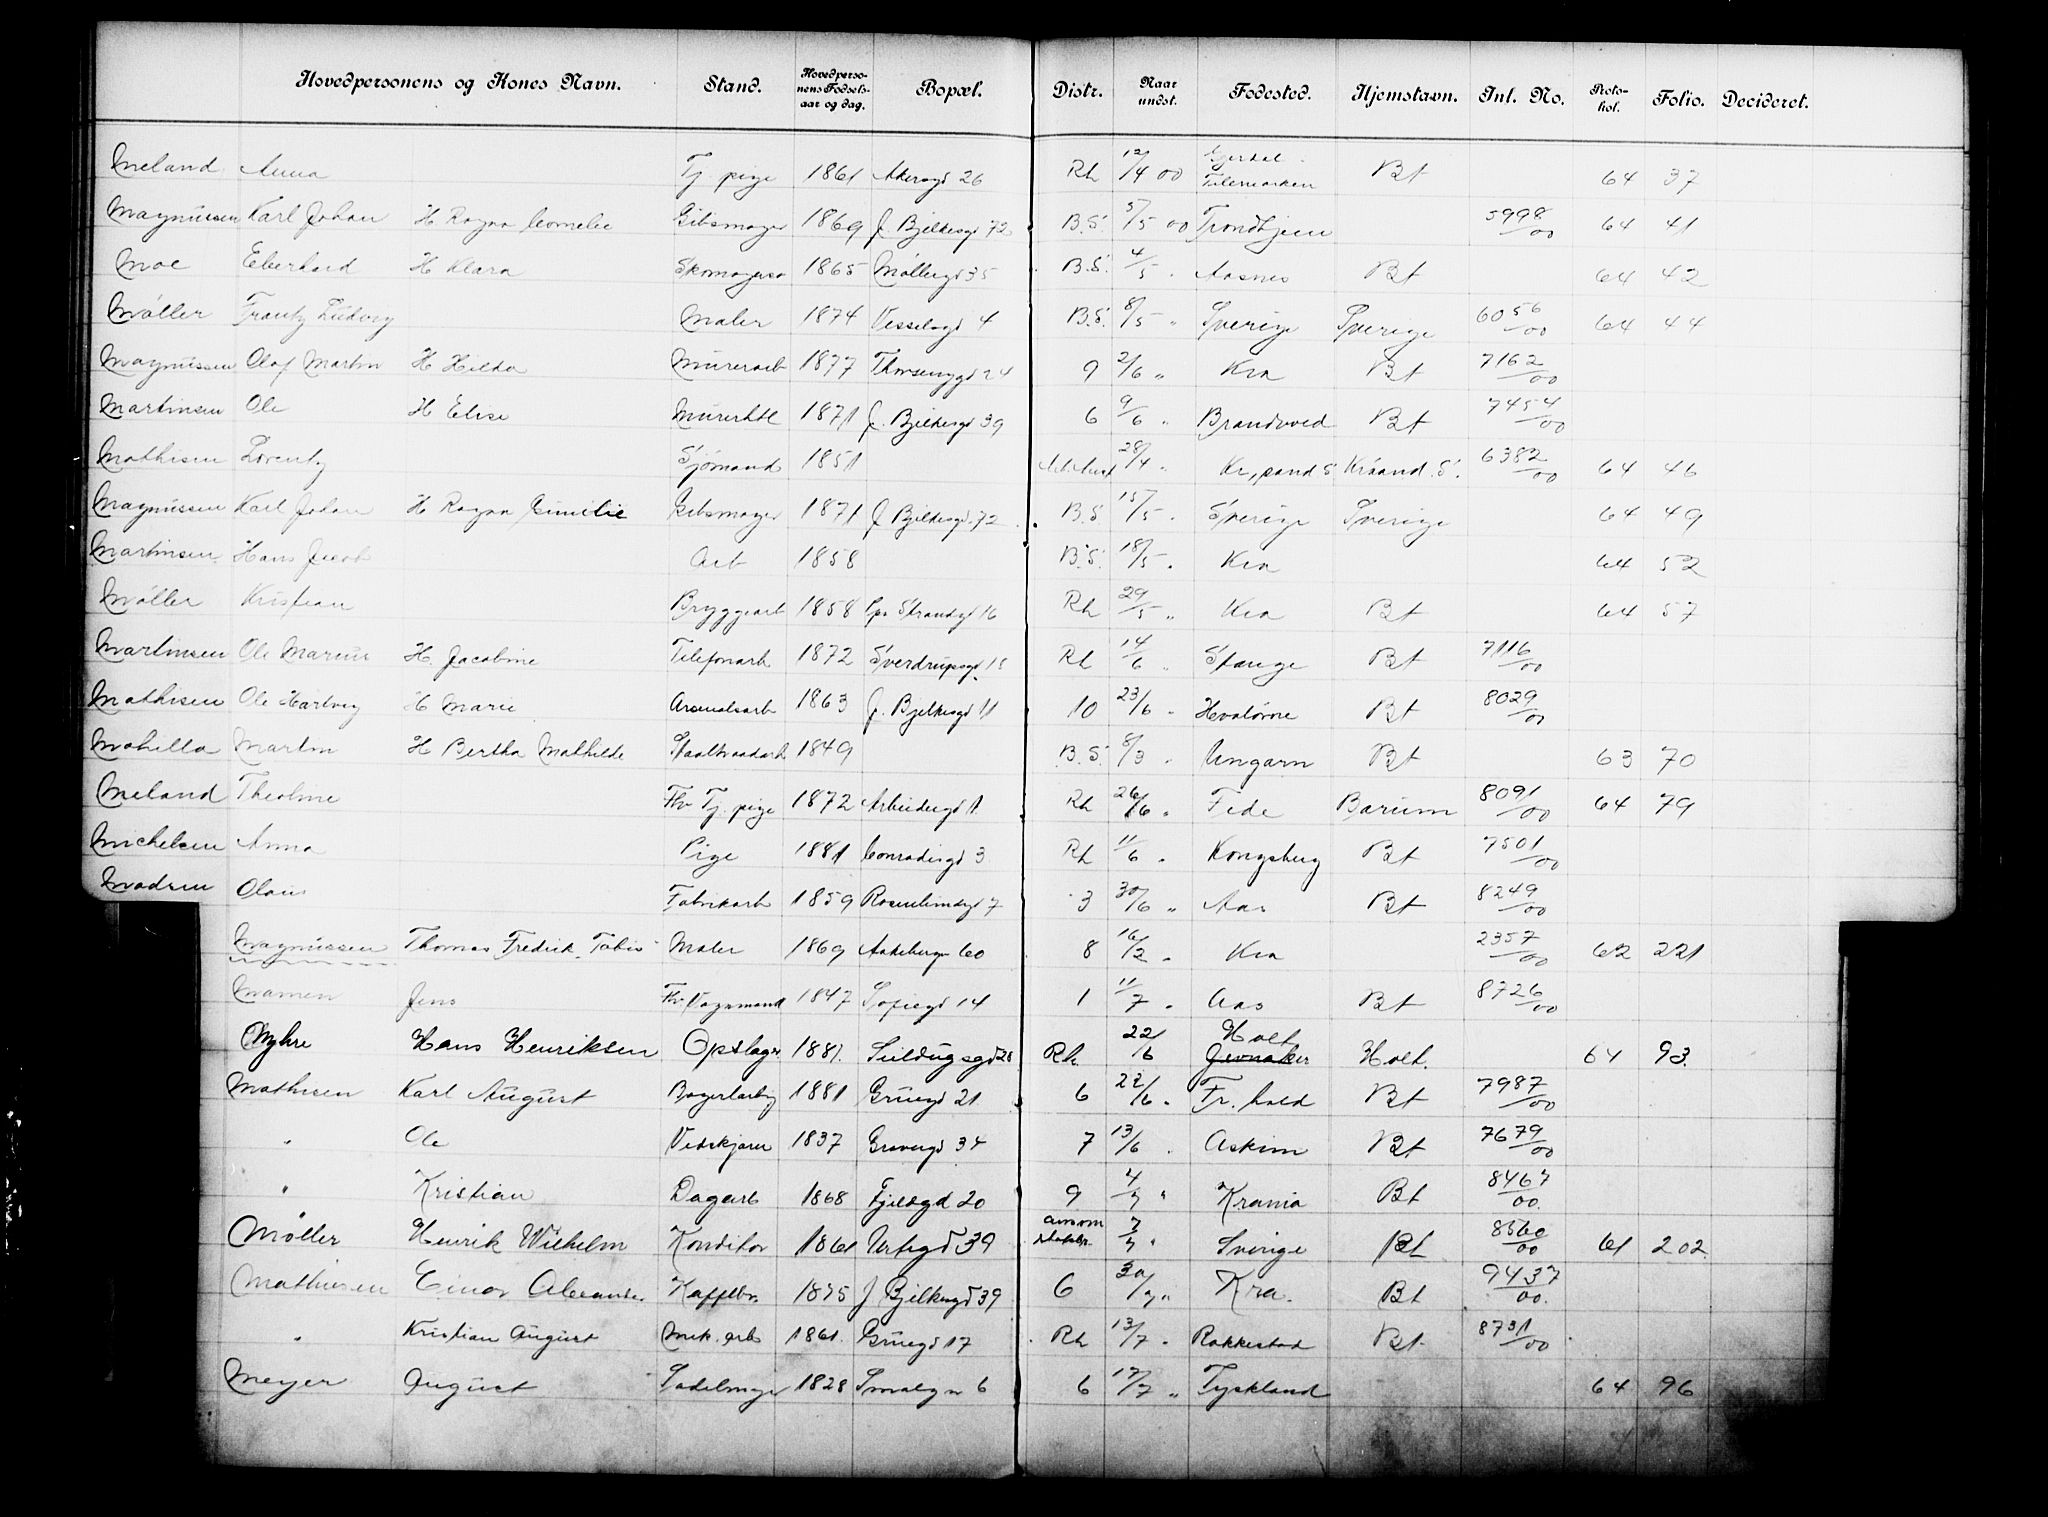 Hovedpersonens og Kones Navn. Stand. Hovedperso-nens Fødsels-aar og dag. Bopæl. Distr. Naar undst. Fødested. Hjemstavn. Inl. No. Proto-kol. Folio. Decideret.
Meland Anna Tj. pige 1861 Akersgd 26 Rh 12/4 00 Telemarken Bt 64 37
Magnussen Karl Johan H Ragna Cornelie Gibsmager 1869 J. Bjelkesgd 72 B.S. 5/5 00 Trondhjem 5998/00 64 41
Moe Eberhard H Klara Skomagersv 1865 Møllergd 35 B.S. 4/5 " Aasnes Bt 64 42
Møller Frantz Ludvig Maler 1874 Vesselsgd 4 B.S. 8/5 " Sverige Sverige 6056/00 64 44
Magnussen Olaf Martin H Hilda Murerarb 1877 24 9 2/6 " Kra Bt 7162/00
Martinsen Ole H Elise 1871 J. Bjelkesgd 39 6 9/6 " Brandvold Bt 7454/00
Mathisen Lorentz Sjømand 1851 28/4 " Kr,sand S Krsand. S. 6382/00 64 46
Magnussen Karl Johan H Ragna Gibsmager 1871 J Bjelkesgd 72 B.S 15/5 " Sverige Sverige 64 49
Martinsen Hans Jacob Arb 1858 B.S. 18/5 " Kra 64 52
Møller Kristian Bryggearb 1858 Strandgd 16 Rh 29/5 " Kra Bt 64 57
Martinsen Ole Marius H Jacobine Telefonarb 1872 Sverdrupsgd 15 Rh 14/6 " Stange Bt 7116/00
Mathisen Ole Hartvig H Marie Arsenalsarb 1863 J. Bjelkesgd 11 10 23/6 " Hvaløerne Bt 8029/00
Mahella Martin H Bertha Mathilde 1849 B.S. 8/3 " Ungarn Bt 63 70
Meland Theoline Fhv Tj. pige 1872 Arbeidergd 1 Rh 26/6 " Fede Barum 8091/00 64 79
Michelsen Anna Pige 1881 Conradisgd 3 Rh 11/6 " Kongsberg Bt 7501/00
Madsen Olaus Fabrikarb 1859 7 3 30/6 " Aas Bt 8249/00
Magnussen Thomas Fredrik Tobis Maler 1869 Aakebergv 60 8 16/2 " Kra 2357/00 62 221
Mamen Jens Fhv. Vognmand 1847 Sofiegd 14 1 11/7 " Aas Bt 8726/00
Myhre Hans Henriksen Opslager 1881. 28 Rh. 22/6 Holt Jevnaker Holt. 64 93.
Mathisen Karl August Bagerlærling 1881 Grüegd 21 6 22/6 " Fr. hald Bt 7987/00
" Ole Vedskjærer 1837 34 7 13/6 " Askim Bt 7679/00
" Kristian Dagarb 1868 Fjeldgd 20 9 4/7 " Krania Bt 8467/00
Møller Henrik Wilhelm Konditor 1861 Urtegd 39 7/7 " Sverige Bt 8560/00 61 202.
Mathiesen Einar Alexander Kaffebr. 1875 J Bjelkesgd 39 6 30/7 " Kra. Bt 9437/00.
" Kristian August Mek. arb 1861. Grüegd 17 Rh 13/7 " Rakkestad Bt 8731/00
Meyer August Sadelmager 1828 6 6 17/7 " Tyskland 64 96